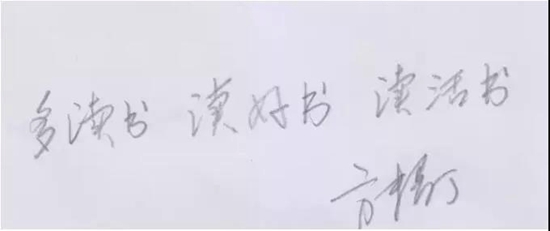 多读书 读好书 读活书